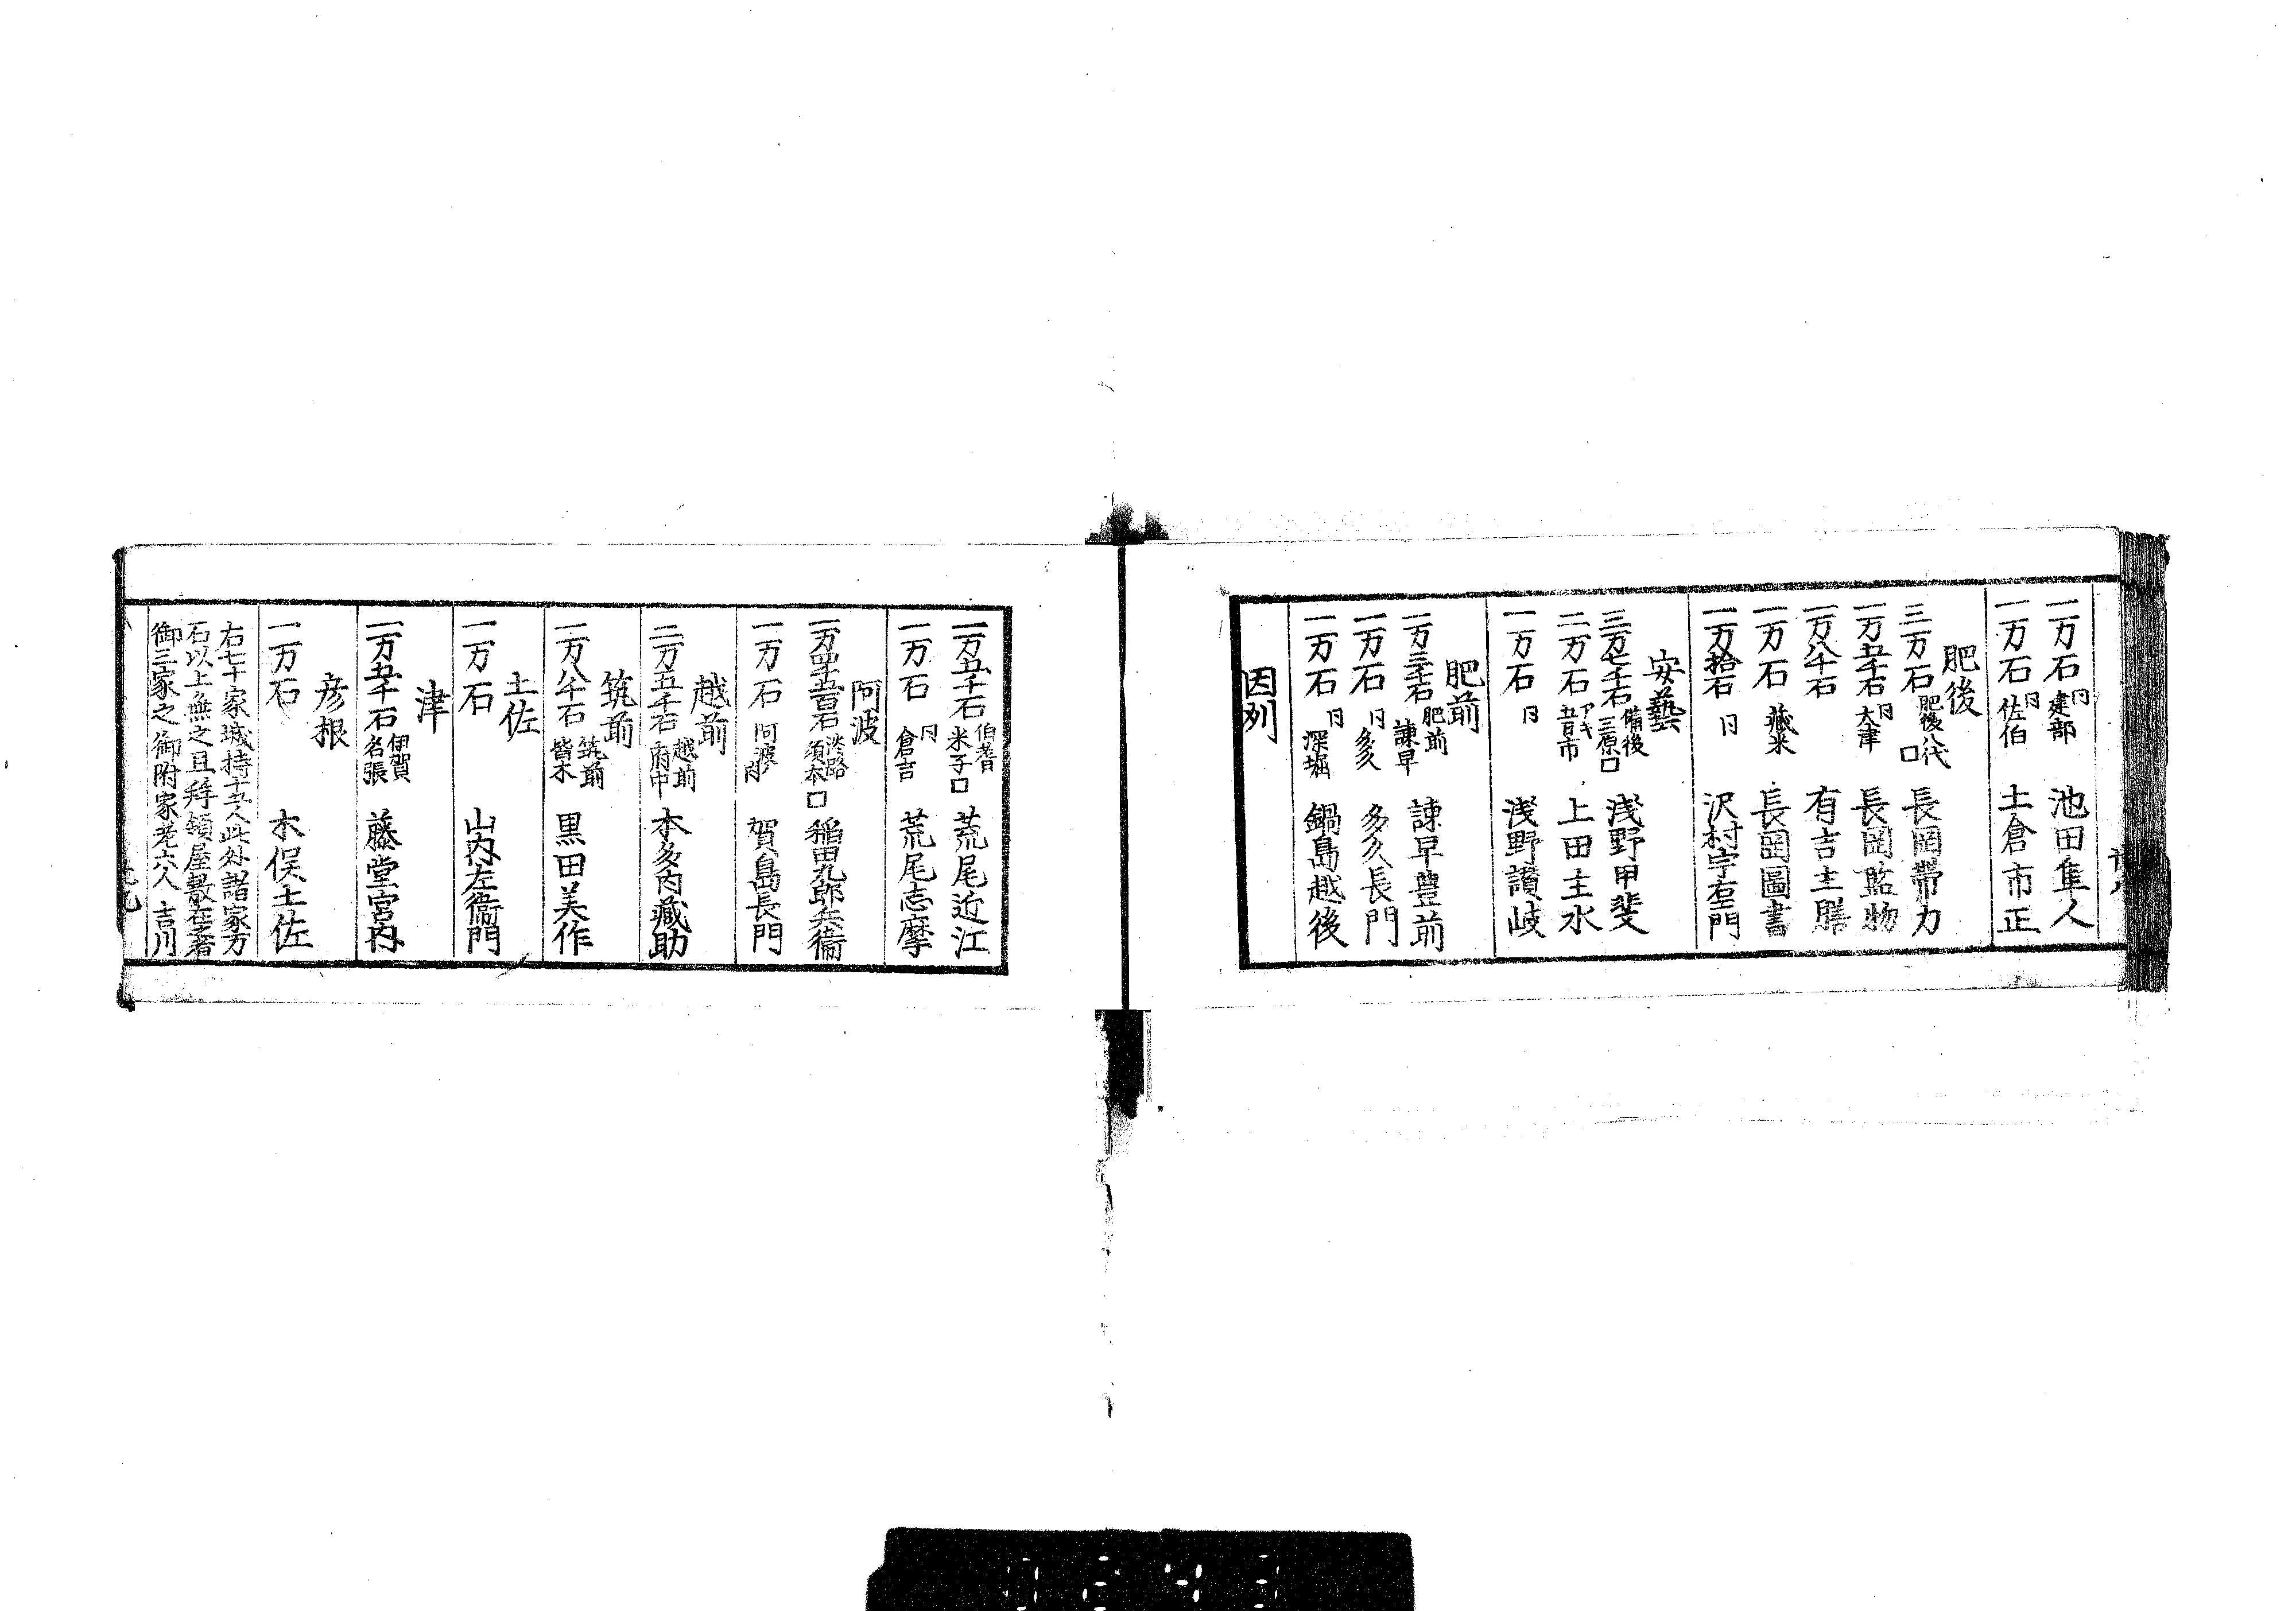 一万石 同建部 池田隼人
一万石 同佐伯 土倉市正
肥後
三万石 肥後八代 口 長岡帯力
一万五千石 同大津 長岡監物
一万八千石 有吉主膳
一万石 蔵米 長岡圖書
一万拾石 同 沢村宇右衛門
安藝
三万七千石 備後三原口 浅野甲斐
二万石 アキ 五日市 上田主水
一万石 同 浅野讃岐
肥前
一万三千石 肥前諌早 諌早豊前
一万石 同多久 多久長門
一万石 同深堀 鍋島越後
因刕
一万五千石 伯耆米子口 荒尾近江
一万石 同倉吉 荒尾志摩
阿波
一万四千五百石 淡路須本口 稲田九郎兵衛
一万石 阿波ノ内 賀島長門
越前
二万五千石 越前府中 本多内蔵助
筑前
一万八千石 筑前皆木 黒田美作
土佐
一万石 山内左衛門
津
一万五千石 伊賀名張 藤堂宮内
彦根
一万石 木俣土佐
右七十家城持十五人此外諸家万
石以上無之且拝領屋敷在之者
御三家之御附家老六人 吉川